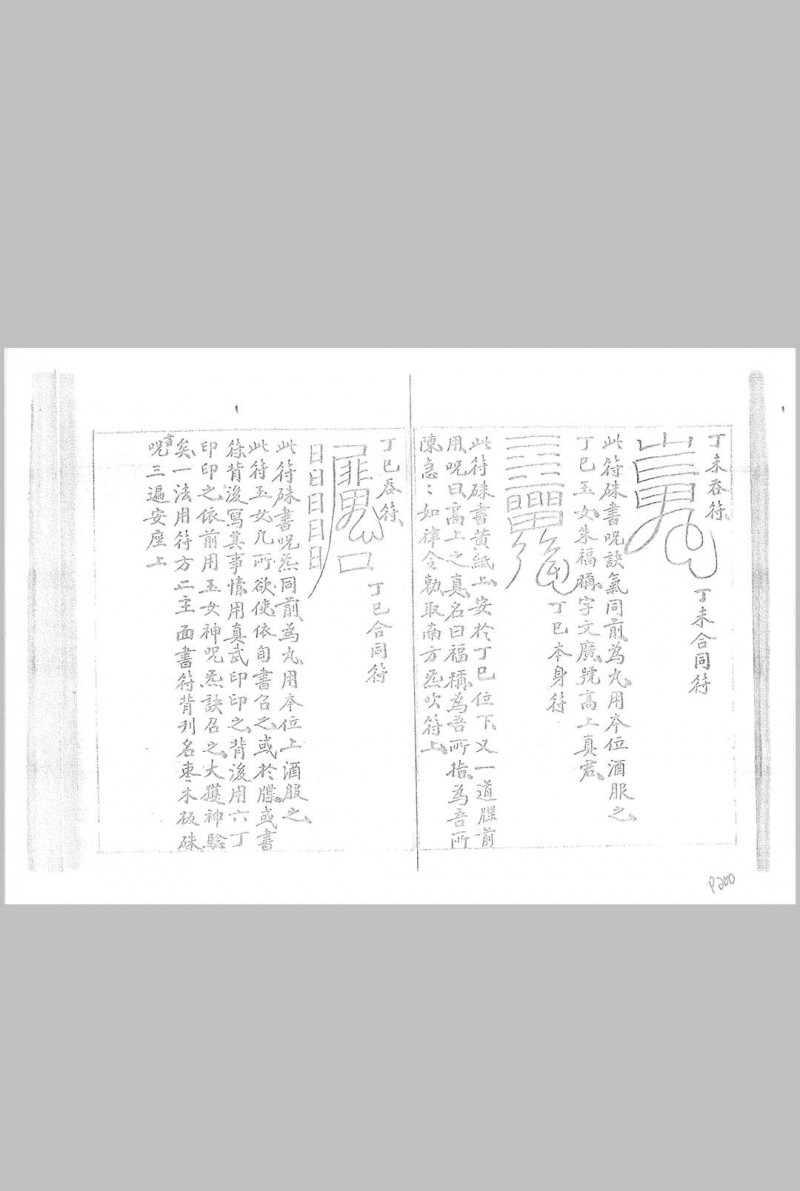 丁未吞符
丁未合同符
此符硃書呪訣氣同前為丸用本位酒服之
丁巳玉女朱福稱字文廣號高上真君
丁巳本身符
此符硃書黃紙上安於丁巳位下又一道牒前
用呪曰高上之真名曰福稱為吾所指為吾所
陳急〻如律令勅取南方炁吹符上
丁巳吞符
丁巳合同符
日日日日日
此符硃書呪炁同前為丸用本位上酒服之
此符玉女凡所欲使依旬書召之或於牒或書
符背後寫其事情用真武印印之背後用六丁
印印之依前用玉女神呪炁訣召之大獲神驗
矣一法用符方二主面書符背刋名枣木板硃
書
呪三遍安座上
P200